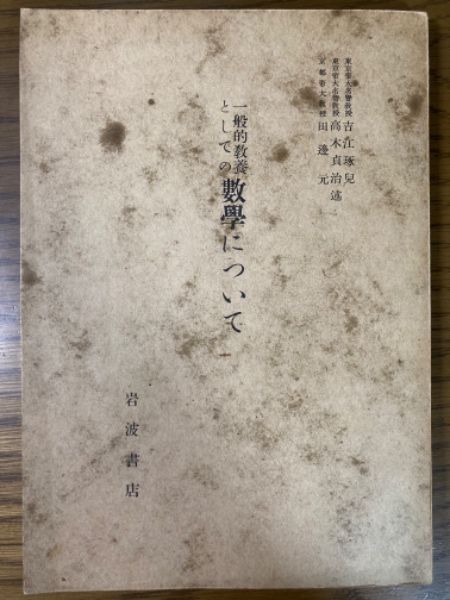 東京帝大名譽敎授 吉江琢兒
東京帝大名譽敎授 高木貞治述
京都帝大敎授 田邊元
一般的敎養
としての
數學について 一
岩波書店